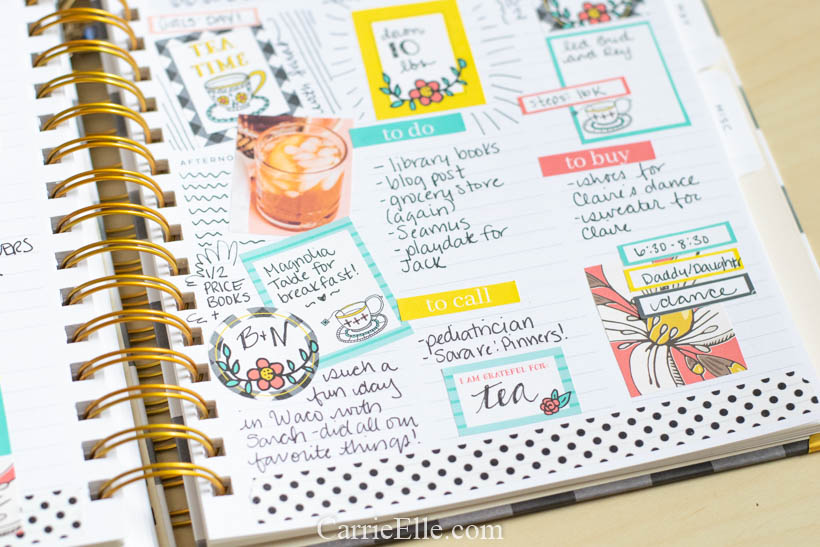 GIRLS' DAY!
TEA
TIME
AFTERNO
down
10
lbs
led Bud
and Rey
steps: 16K
to do
- library books
- blog post
- grocery store
(again)
- Seamus
- playdate for
Jack
to buy
- shoes for
Claire's dance
- sweater for
Claire
Magnolia
Table for
breakfast!
1/2
PRICE
BOOKS
B+N
such a
fun day
in Waco with
Sarah - did all our
favorite things!
to call
- pediatrician
- Sara re: Pinners!
I AM GRATEFUL FOR:
tea
6:30-8:30
Daddy/Daughtr
dance
VERS
MISC
CarrieElle.com